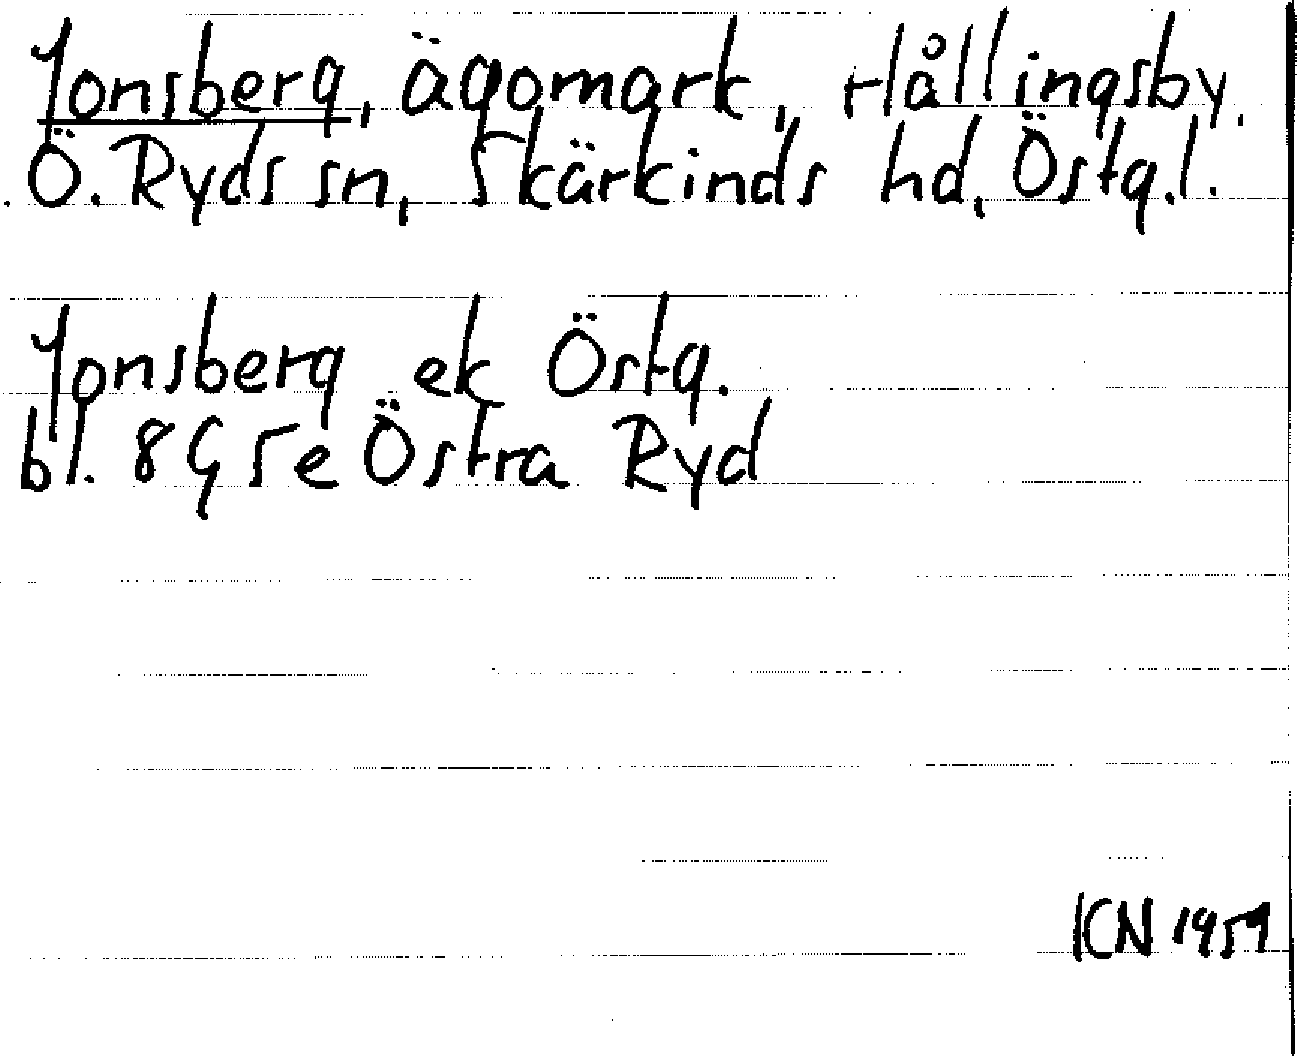 Jonsberg, ägomark, Hållingsby.
Ö. Ryds sn, Skärkinds hd, Östg.l.
Jonsberg ek Östg.
bl. 8G 5e Östra Ryd
KN 1957